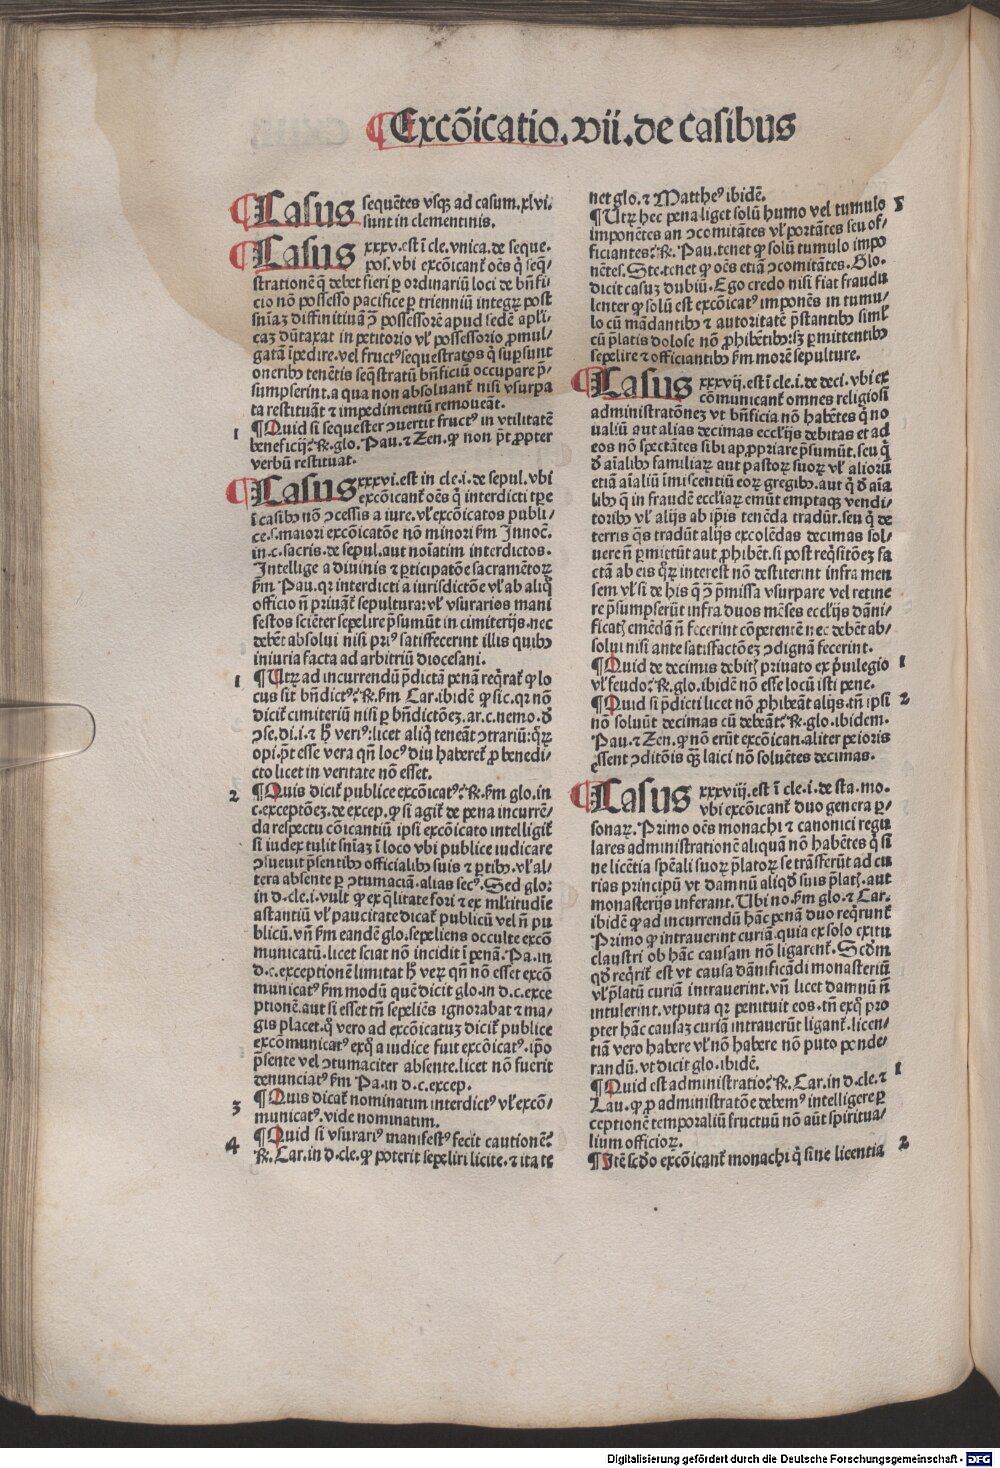 ¶Excõicatio.vii.de casibus
¶Casus sequẽtes vsqꝫ ad casum.xlvi.
sunt in clementinis.
¶Casus xxxv.est ĩ cle.vnica.de seque.
pos.vbi excõicant᷑ oẽs q̇ seq̃
strationẽ q̃ debet fieri ꝑ ordinariũ loci de bñfi
cio nõ possesso pacifice ꝑ trienniũ integꝝ post
sñiaꝫ diffinitiuã ↄ̃ possessorẽ apud sedẽ apl̃i
caꝫ dũtaxat in petitorio vl̓ possessorio ꝓmul
gatã ĩpedire.vel fructꝰ sequestratos q̇ supsunt
oneribꝰ tenẽtis seq̃stratũ bñficiũ occupare p̃
sumpserint.a qua non absoluant᷑ nisi vsurpa
ta restituãt ⁊ impedimentũ remoueãt.
1 ¶Quid si sequester ↄuertit fructꝰ in vtilitatẽ
beneficij?℟.glo.Pau.⁊ Zen.ꝙ non p̃t ꝓpter
verbũ restituat.
¶Casus xxxvi.est in cle.i.de sepul.vbi
excõicant᷑ oẽs q̇ interdicti tp̃e
ĩ casibꝰ nõ ↄcessis a iure.vl̓ excõicatos publi/
ce.s.maiori excõicatõe nõ minori ẜm Innoc̃.
in.c.sacris.de sepul.aut noĩatim interdictos.
Intellige a diuinis ⁊ ꝑticipatõe sacramẽtoꝝ
ẜm Pau.qꝛ interdicti a iurisdictõe vl̓ ab aliq̊
officio ñ priuãt᷑ sepultura:vl̓ vsurarios mani
festos sciẽter sepelire p̃sumũt in cimiterijs.nec
debẽt absolui nisi priꝰ satiffecerint illis quibꝰ
iniuria facta ad arbitriũ diocesani.
1 ¶Utꝝ ad incurrendũ p̃dictã penã req̇rat᷑ ꝙ lo
cus sit bñdictꝰ?℟.ẜm Car.ibidẽ ꝙ sic.qꝛ nõ
dicit᷑ cimiteriũ nisi ꝑ bñdictõeꝫ.ar.c.nemo.d̓
ↄse.di.i.⁊ h̓ veriꝰ:licet aliq̇ teneãt ↄtrariũ:q̃ꝝ
opi.p̃t esse vera qñ locꝰ diu haberet᷑ ꝓ benedi/
cto licet in veritate nõ esset.
2 ¶Quis dicit᷑ publice excõicatꝰ?℟.ẜm glo.in
c.exceptõeꝫ.de excep.ꝙ si agit᷑ de pena incurrẽ/
da respectu cõicantiũ ipsi excõicato intelligit᷑
si iudex tulit sñiaꝫ ĩ loco vbi publice iudicare
ↄsueuit p̃sentibꝰ officialibꝰ suis ⁊ ꝑtibꝰ.vl̓ al/
tera absente ꝑ ↄtumaciã.alias secꝰ.Sed glo:
in d.cle.i.vult ꝙ ex q̃litate fori ⁊ ex ml̓titudĩe
astantiũ vl̓ paucitate dicat᷑ publicũ vel ñ pu
blicũ.vñ ẜm eandẽ glo.sepeliens occulte excõ
municatũ.licet sciat nõ incidit ĩ penã.Pa.in
d.c.exceptionẽ limitat h̓ veꝝ qñ nõ esset excõ
municatꝰ ẜm modũ quẽ dicit glo.in d.c.exce
ptionẽ.aut si esset tñ sepeliẽs ignorabat ⁊ ma/
gis placet.q̊ vero ad excõicatuꝫ dicit᷑ publice
excõmunicatꝰ exq̊ a iudice fuit excõicatꝰ.ip̃o
p̃sente vel ↄtumaciter absente.licet nõ fuerit
denunciatꝰ ẜm Pa.in d.c.excep.
3 ¶Quis dicat᷑ nominatim interdictꝰ vl̓ excõ/
municatꝰ.vide nominatim.
4 ¶Quid si vsurariꝰ manifestꝰ fecit cautionẽ?
℟.Car.in d.cle.ꝙ poterit sepeliri licite.⁊ ita te
net glo.⁊ Mattheꝰ ibidẽ.
¶Utꝝ hec pena liget solũ humo vel tumulo 5
imponẽtes an ↄcomitãtes vl̓ portãtes seu of/
ficiantes?℟.Pau.tenet ꝙ solũ tumulo impo
nẽtes.Ste.tenet ꝙ oẽs etiã ↄcomitãtes.Glo.
dicit casuꝫ dubiũ.Ego credo nisi fiat fraudu
lenter ꝙ solũ est excõicatꝰ imponẽs in tumu/
lo cũ mãdantibꝰ ⁊ autoritatẽ p̃stantibꝰ siml̓
cũ p̃latis dolose nõ ꝓhibẽtibꝰ:sꝫ ꝑmittentibꝰ
sepelire ⁊ officiantibꝰ ẜm morẽ sepulture.
¶Casus xxxvij.est ĩ cle.i.de deci.vbi ex
cõmunicant᷑ omnes religiosi
administratõneꝫ vt bñficia nõ habẽtes q̇ no
ualiũ aut alias decimas eccl̓ijs debitas et ad
eos nõ spectãtes sibi apꝓpriare p̃sumũt.seu q̇
d̓ aĩalibꝰ familiaꝝ aut pastoꝝ suoꝝ vl̓ alioꝝ
etiã aĩaliũ ĩmiscentiũ eoꝝ gregibꝰ.aut q̇ d̓ aĩa
libꝰ q̇ in fraudẽ eccl̓iaꝝ emũt emptaqꝫ vendi/
toribꝰ vl̓ alijs ab ip̃is tenẽda tradũt.seu q̇ de
terris q̃s tradũt alijs excolẽdas decimas sol/
uere ñ ꝑmittũt aut ꝓhibẽt.si post req̇sitõeꝫ fa
ctã ab eis q̊ꝝ interest nõ destiterint infra men
sem vl̓ si de his q̃ ↄ̃ p̃missa vsurpare vel retine
re p̃sumpserũt infra duos mẽses eccl̓ijs dãni/
ficatꝭ emẽdã ñ fecerint cõpetentẽ nec debẽt ab/
solui nisi ante satisfactõeꝫ ↄdignã fecerint.
¶Quid de decimis debitꝭ priuato ex p̃uilegio 1
vl̓ feudo?℟.glo.ibidẽ nõ esse locũ isti pene.
¶Quid si p̃dicti licet nõ ꝓhibeãt alijs.tñ ipsi 2
nõ soluũt decimas cũ debeãt?℟.glo.ibidem.
Pau.⁊ Zen.ꝙ nõ erũt excõicati.aliter peioris
essent ↄditõis qꝫ laici nõ soluẽtes decimas.
¶Casus xxxviij.est ĩ cle.i.de sta.mo.
vbi excõicant᷑ duo genera ꝑ/
sonaꝝ.Primo oẽs monachi ⁊ canonici regu
lares administrationẽ aliquã nõ habẽtes q̇ si
ne licẽtia sp̃eali suoꝝ p̃latoꝝ se trãsferũt ad cu
rias principũ vt damnũ aliqd̓ suis p̃latꝭ.aut
monasterijs inferant.Ubi no.ẜm glo.⁊ Car.
ibidẽ ꝙ ad incurrendũ hãc penã duo req̇runt᷑
Primo ꝙ intrauerint curiã.quia ex solo exitu
claustri ob hãc causam nõ ligarent᷑.Scd̓m
qd̓ req̇rit᷑ est vt causa dãnificãdi monasteriũ
vl̓ p̃latũ curiã intrauerint.vñ licet damnũ ñ
intulerint.vtputa qꝛ penituit eos.tñ exq̊ pro
pter hãc causaꝫ curiã intrauerũt ligant᷑.licen/
tiã vero habere vl̓ nõ habere nõ puto ponde/
randũ.vt dicit glo.ibidẽ.
¶Quid est administratio?℟.Car.in d.cle.⁊ 1
Lau.ꝙ ꝓ administratõe debemꝰ intelligere ꝑ
ceptionẽ temporaliũ fructuũ nõ aũt spiritua/
lium officioꝝ.
¶Itẽ scd̓o excõicant᷑ monachi q̇ sine licentia 2
Digitalisierung gefördert durch die Deutsche Forschungsgemeinschaft - DFG